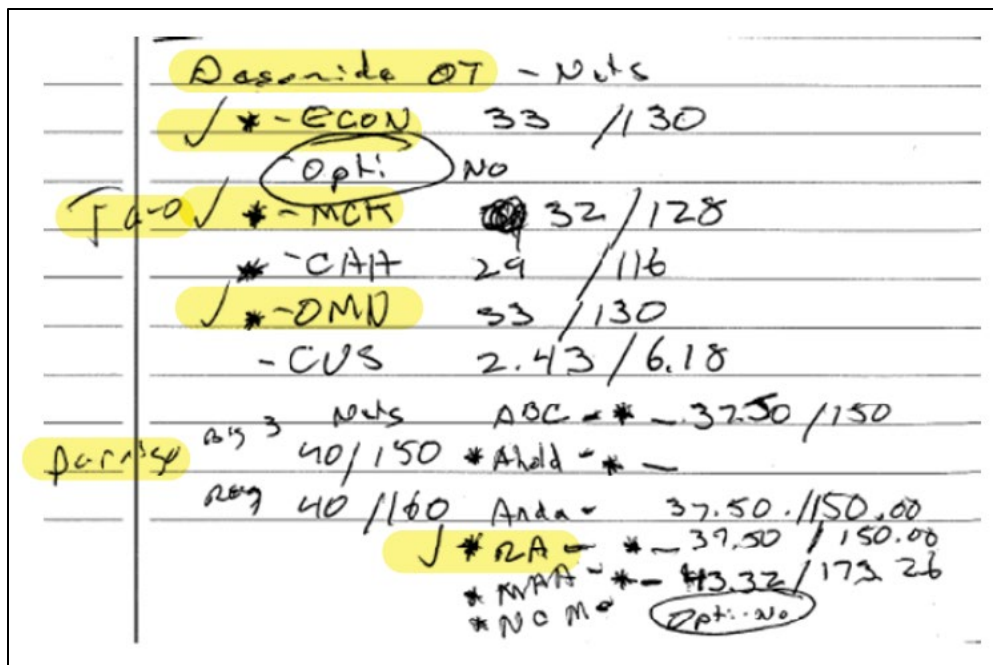 Desonide OT - Nets
✓ * - ECON 33 /130
Opti No
Taro ✓ * - MCK 32 /128
* - CAH 29 /116
✓ * - OMN 33 /130
- CVS 2.43 / 6.18
Nets ABC - * - 37.50 /150
Big 3 40/150 * Ahold - * -
Reg 40 /160 Anda - 37.50 /150.00
✓ * RA - * - 37.50 / 150.00
* - 43.32 / 173.26
* NC M Opti-No